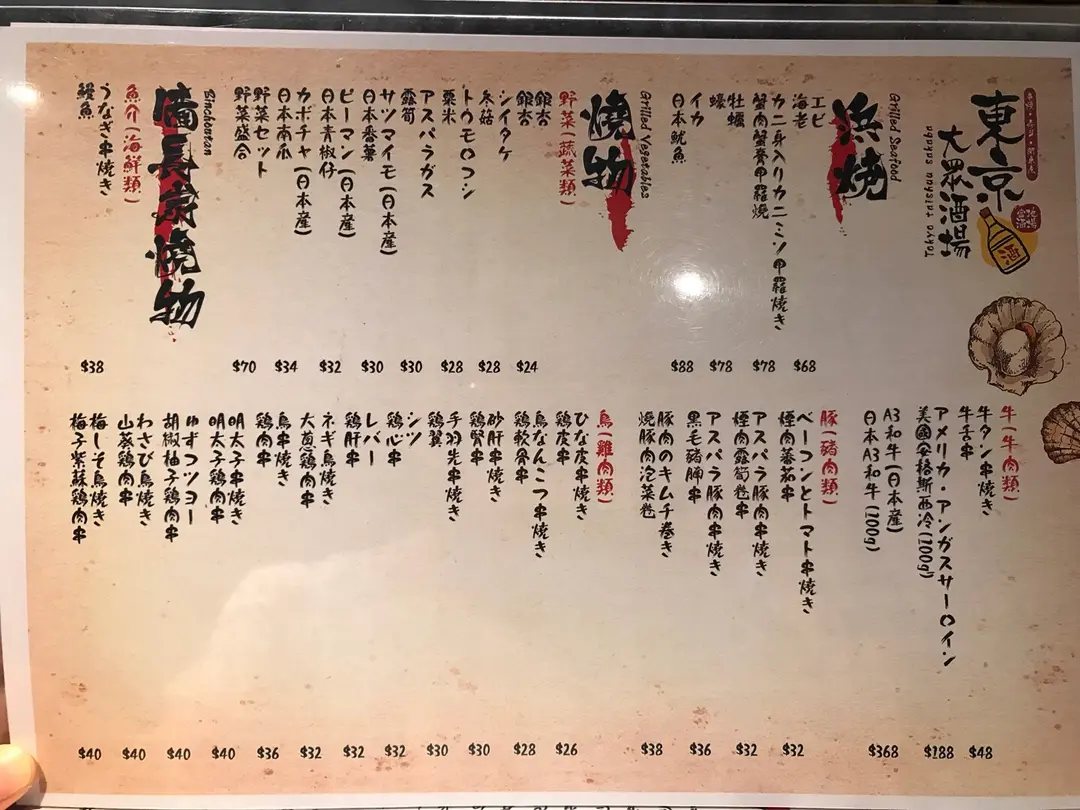 東京
大眾酒場
Tokyo taishu sakaba
酒
Grilled Seafood
浜焼
エビ
海老
$68
カニ身入りカニミソ甲羅焼き
蟹肉蟹膏甲羅燒
$78
牡蠣
蠔
$78
イカ
日本魷魚
$88
Grilled Vegetables
燒物
野菜(蔬菜類)
銀杏
銀杏
$24
シイタケ
冬菇
$28
トウモロコシ
粟米
$28
アスパラガス
露筍
$30
サツマイモ(日本産)
日本番薯
$30
ピーマン(日本産)
日本青椒仔
$32
カボチャ(日本産)
日本南瓜
$34
野菜セット
野菜盛合
$70
Binchoutan
備長炭燒物
魚介(海鮮類)
うなぎ串焼き
鰻魚
$38
牛(牛肉類)
牛タン串焼き
牛舌串
$48
アメリカ・アンガスサーロイン
美國安格斯西冷(100g)
$188
A3和牛(日本産)
日本A3和牛(100g)
$368
豚(豬肉類)
ベーコンとトマト串焼き
煙肉蕃茄串
$32
アスパラ豚肉串焼き
煙肉露筍卷串
$32
アスパラ豚肉串焼き
黒毛豬脷串
$36
豚肉のキムチ巻き
燒豚肉泡菜卷
$38
鳥(雞肉類)
ひな皮串焼き
鶏皮串
$26
鳥なんこつ串焼き
鶏軟骨串
$28
砂肝串焼き
鶏腎串
$30
手羽先串焼き
鶏翼
$30
シツ
鶏心串
$32
レバー
鶏肝串
$32
ネギ鳥焼き
大蔥鶏肉串
$32
鳥串焼き
鶏肉串
$36
明太子串焼き
明太子鶏肉串
$40
ゆずコツヨー
胡椒柚子鶏肉串
$40
わさび鳥焼き
山葵鶏肉串
$40
梅しそ鳥焼き
梅子紫蘇鶏肉串
$40